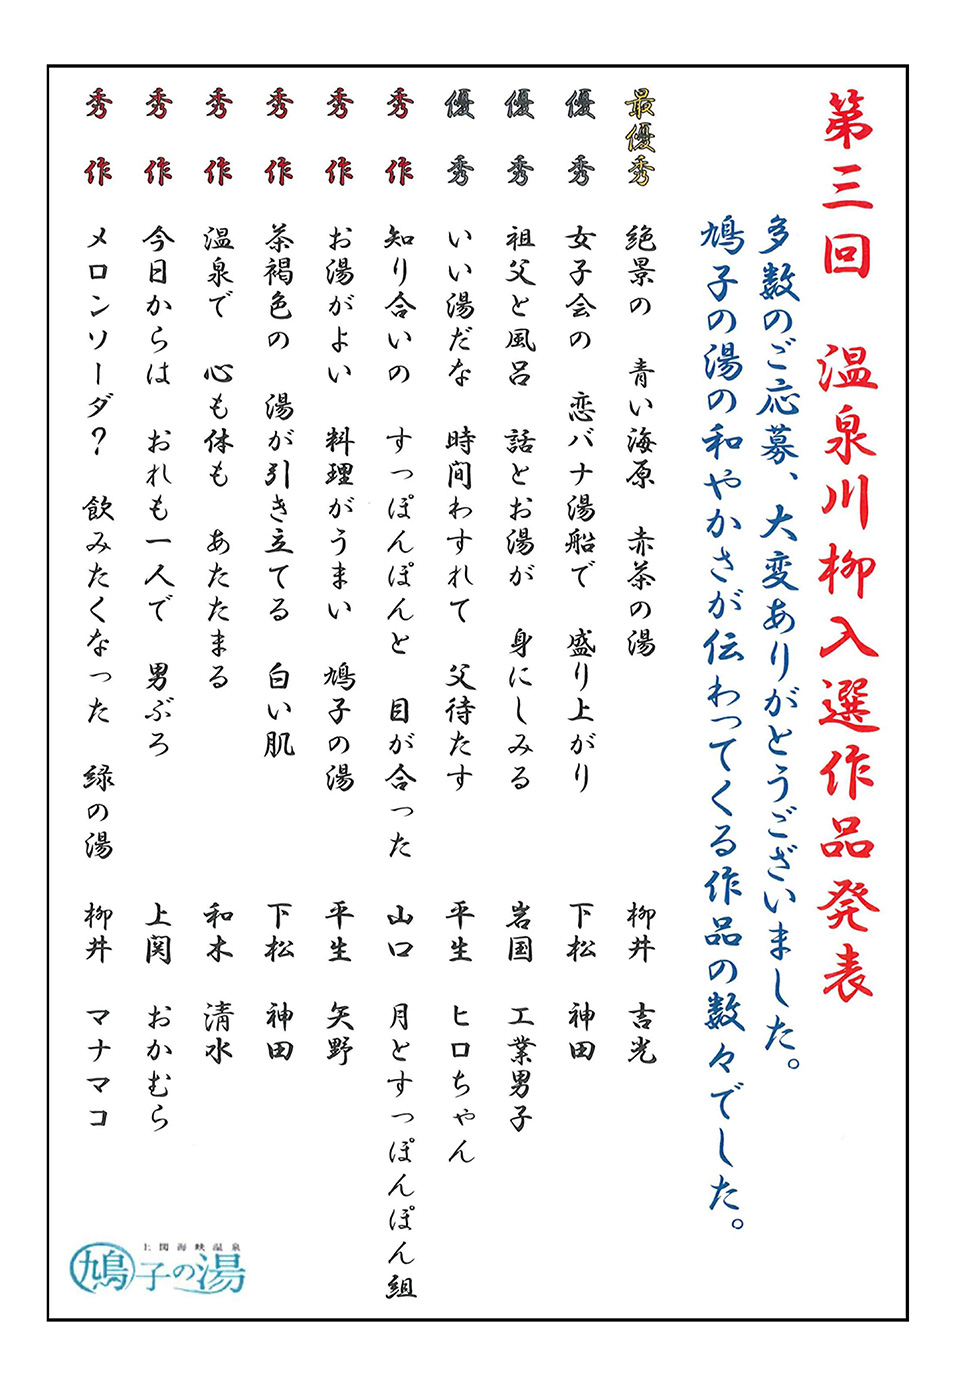 第三回　温泉川柳入選作品発表
多数のご応募、大変ありがとうございました。
鳩子の湯の和やかさが伝わってくる作品の数々でした。
最優秀　絶景の　青い海原　赤茶の湯　柳井　吉光
優秀　女子会の　恋バナ湯船で　盛り上がり　下松　神田
優秀　祖父と風呂　話とお湯が　身にしみる　岩国　工業男子
優秀　いい湯だな　時間わすれて　父待たす　平生　ヒロちゃん
秀作　知り合いの　すっぽんぽんと　目が合った　山口　月とすっぽんぽん組
秀作　お湯がよい　料理がうまい　鳩子の湯　平生　矢野
秀作　茶褐色の　湯が引き立てる　白い肌　下松　神田
秀作　温泉で　心も体も　あたたまる　和木　清水
秀作　今日からは　おれも一人で　男ぶろ　上関　おかむら
秀作　メロンソーダ？　飲みたくなった　緑の湯　柳井　マナマコ
上関海峡温泉
鳩子の湯